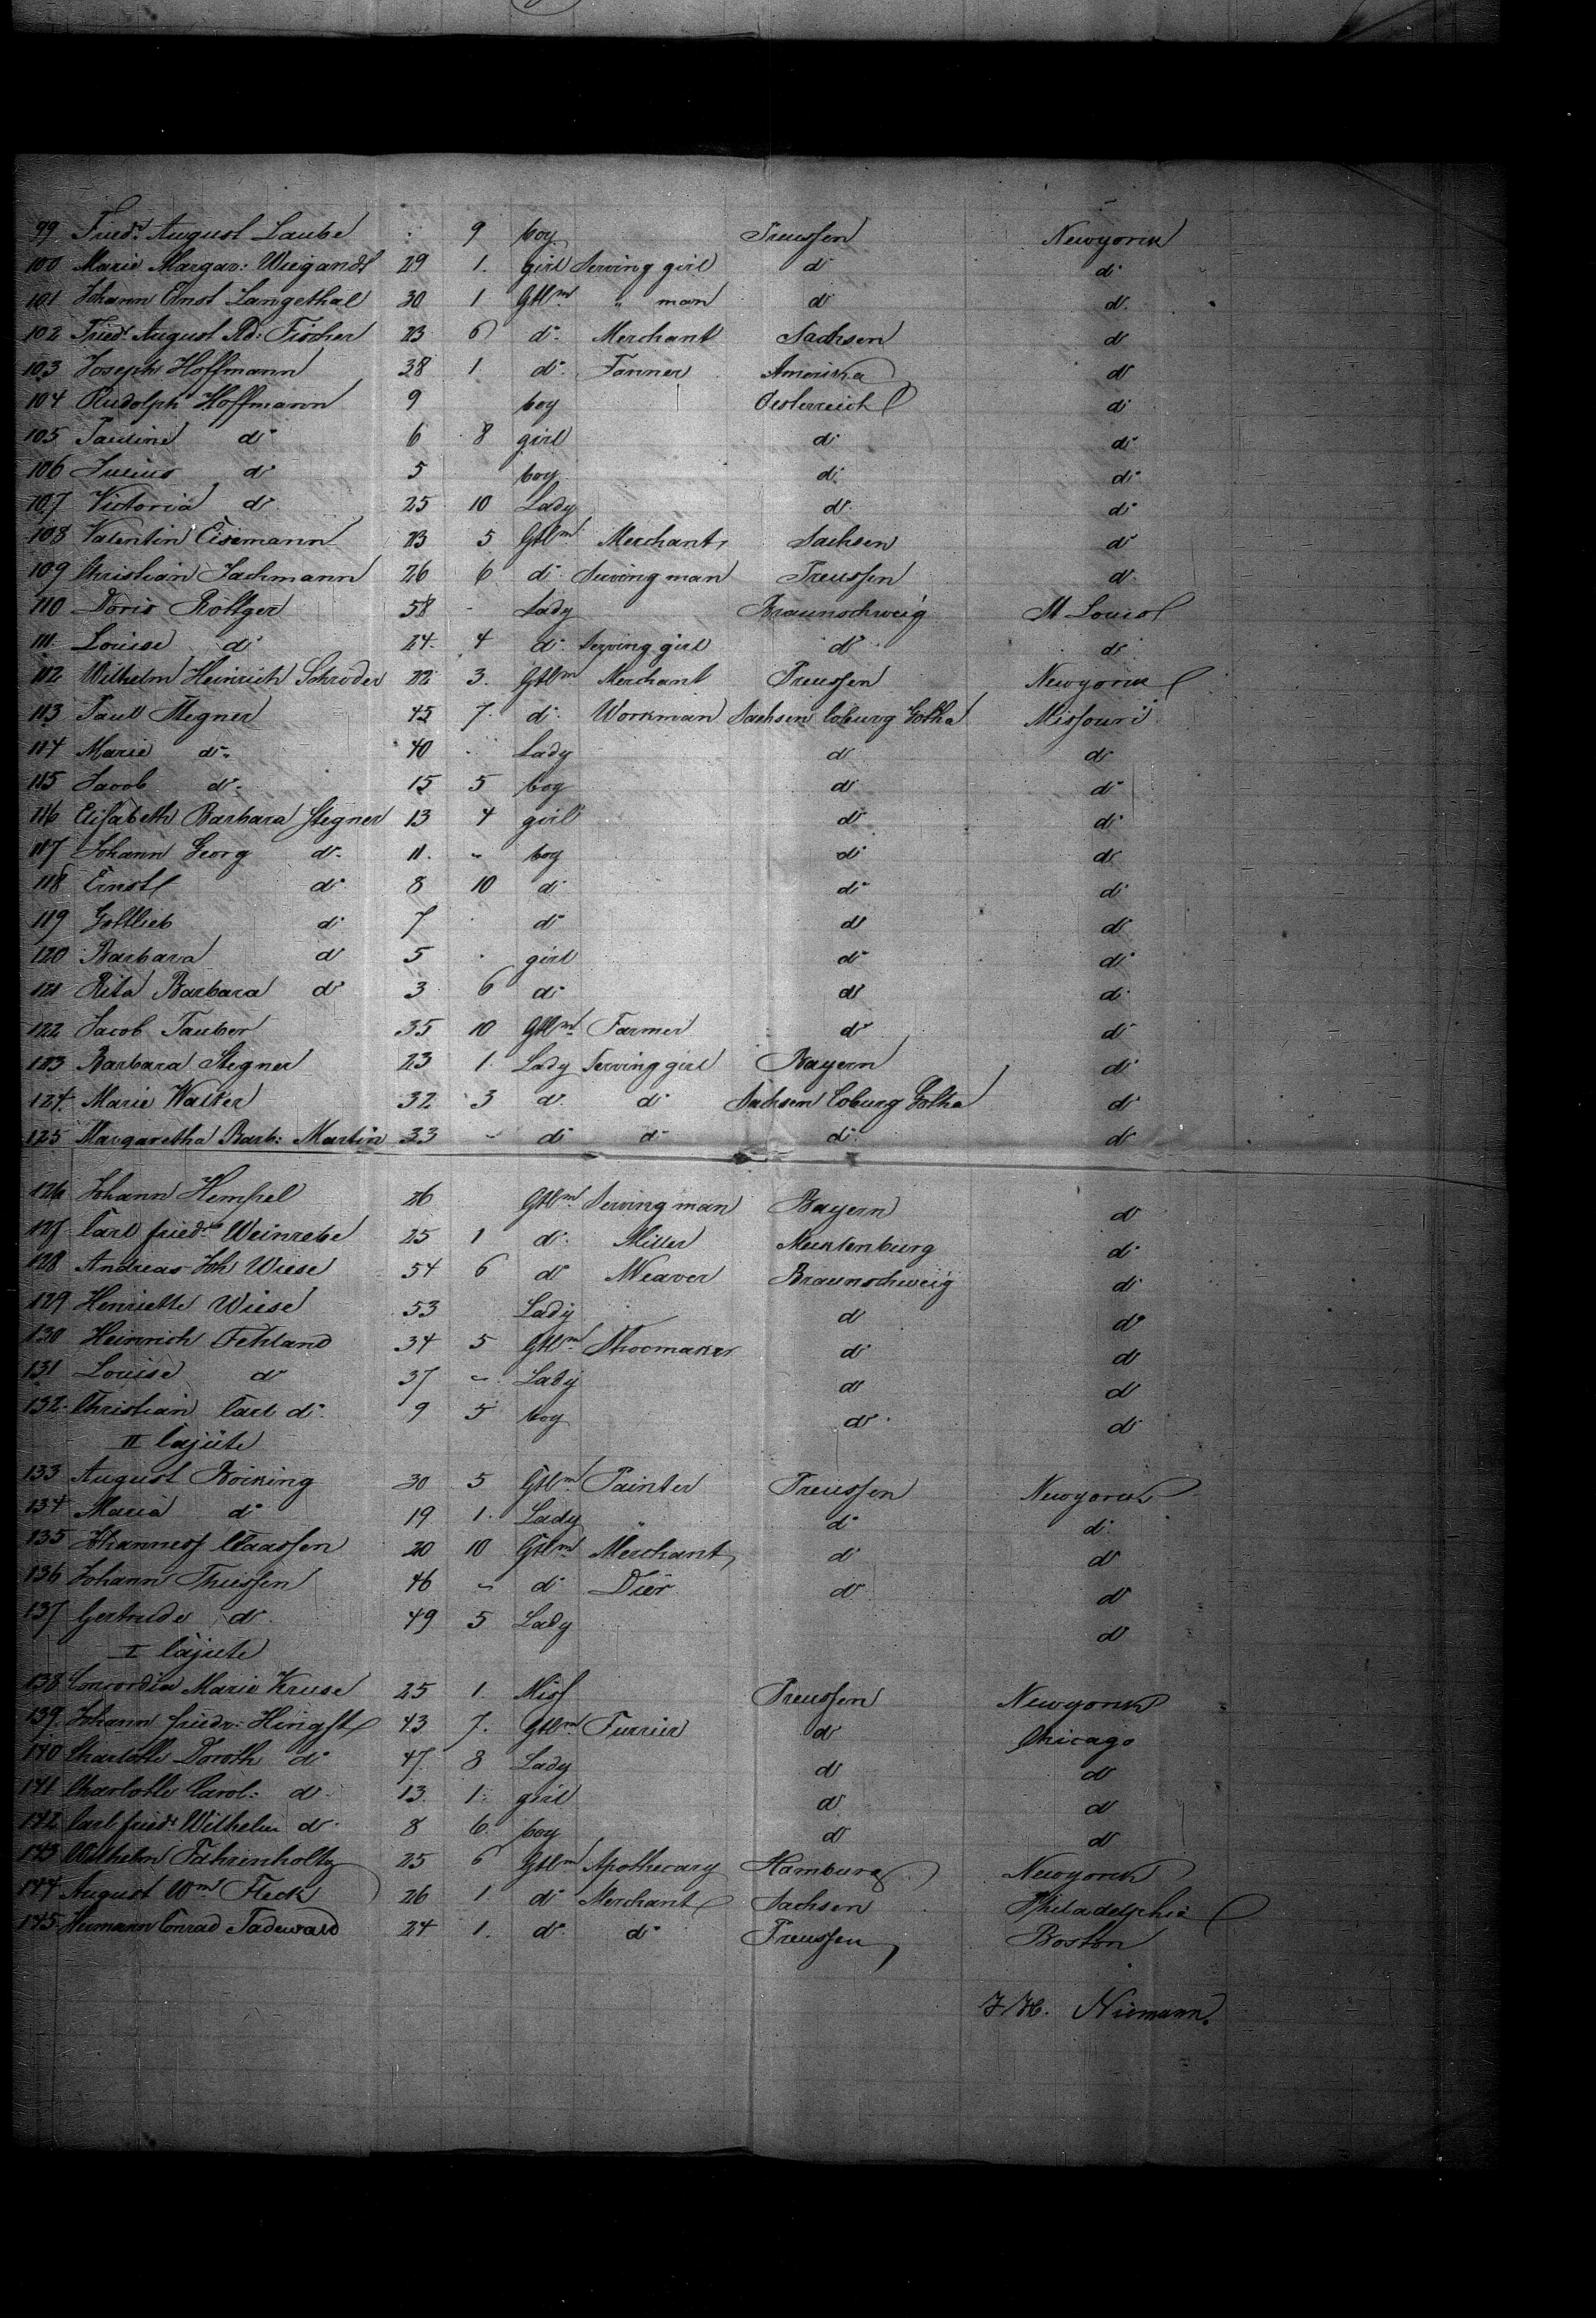 99 Friedr. August Laube : 9 boy Preussen Newyork
100 Marie Margar: Wiegandt 29 1. girl Serving girl do do
101 Johann Ernst Langethal 30 1 Gtlm " man do do
102 Friedr. August Rd: Fischer 23 6 do Merchant Sachsen do
103 Joseph Hoffmann 38 1. do Farmer Amerika do
104 Rudolph Hoffmann 9 boy Oesterreich do
105 Pauline do 6 8 girl do do
106 Julius do 5 boy do do
107 Victoria do 25 10 Lady do do
108 Valentin Eisemann 23 5 Gtlm Merchant Sachsen do
109 Christian Jachmann 26 6 do Serving man Preussen do
110 Doris Röttger 58 - Lady Braunschweig St Louis
111. Louise do 24. 4 do Serving girl do do
112 Wilhelm Heinrich Schröder 22 3. Gtlm Merchant Preussen Newyork
113 Paul Stegner 45 7. do Workman Sachsen Coburg Gotha Missouri
114 Marie do 40 Lady do do
115 Jacob do 15 5 boy do do
116 Elisabeth Barbara Stegner 13 4 girl do do
117 Johann Georg do 11. - boy do do
118 Ernst do 8 10 do do do
119 Gottlieb do 7 do do do
120 Barbara do 5 girl girl do do
121 Rita Barbara do 3 6 do do do
122 Jacob Tauber 35 10 Gtlm Farmer do do
123 Barbara Stegner 23 1. Lady Serving girl Bayern do
124. Marie Walter 32 3 do do Sachsen Coburg Gotha do
125 Margaretha Barb: Martin 33 - do do do do
126 Johann Hempel 26 Gtlm Serving man Bayern do
127. Carl friedr. Weinrebe 25 1 do Miller Mecklenburg do
128 Andreas Joh Wiese 54 6 do Weaver Braunschweig do
129 Henriette Wiese 53 Lady do do
130 Heinrich Fehland 34 5 Gtlm Shoemaker do do
131 Louise do 37 - Lady do do
132. Christian Carl do 9 5 boy do do
II Cajüte
133 August Böcking 30 5 Gtlm Painter Preussen Newyork
134 Maria do 19 1. Lady " do do
135 Johannes Claassen 20 10 Gtlm Merchant do do
136 Johann Thiessen 46 - do Dier do do
137 Gertrude do 49 5 Lady do
I Cajüte
138 Concordia Marie Kruse 25 1. Miss Preussen Newyork
139. Johann friedr: Hingst 43 7. Gtlm Furrier do Chicago
140 Charlotte Doroth do 47. 8 Lady do do
141 Charlotte Carol: do 13. 1. girl do do
142 Carl friedr. Wilhelm do 8 6. boy do do
143 Wilhelm Fahrenholtz 25 6 Gtlm Apothecary Hamburg Newyork
144 August Wm Fleck 26 1 do Merchant Sachsen Philadelphia
145. Hermann Conrad Tadewald 24 1. do do Preussen Boston
J. H. Niemann.